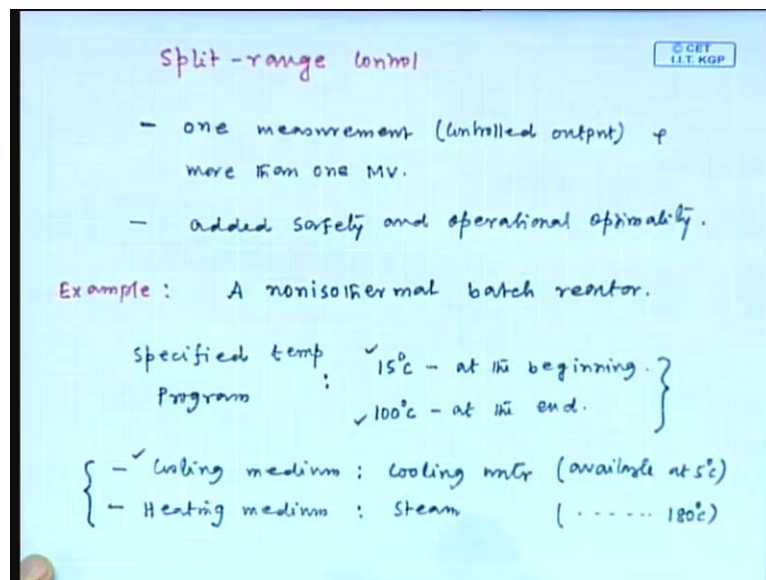 Split-range Control
© CET
I.I.T. KGP
- one measurement (Controlled output) &
more than one MV.
- added safety and operational optimality.
Example : A nonisothermal batch reactor.
Specified temp
Program : ✓15°C - at the beginning.
✓100°C - at the end.
- ✓Cooling medium : Cooling wtr (available at 5°C)
- Heating medium : Steam ( - - - - - - 180°C)